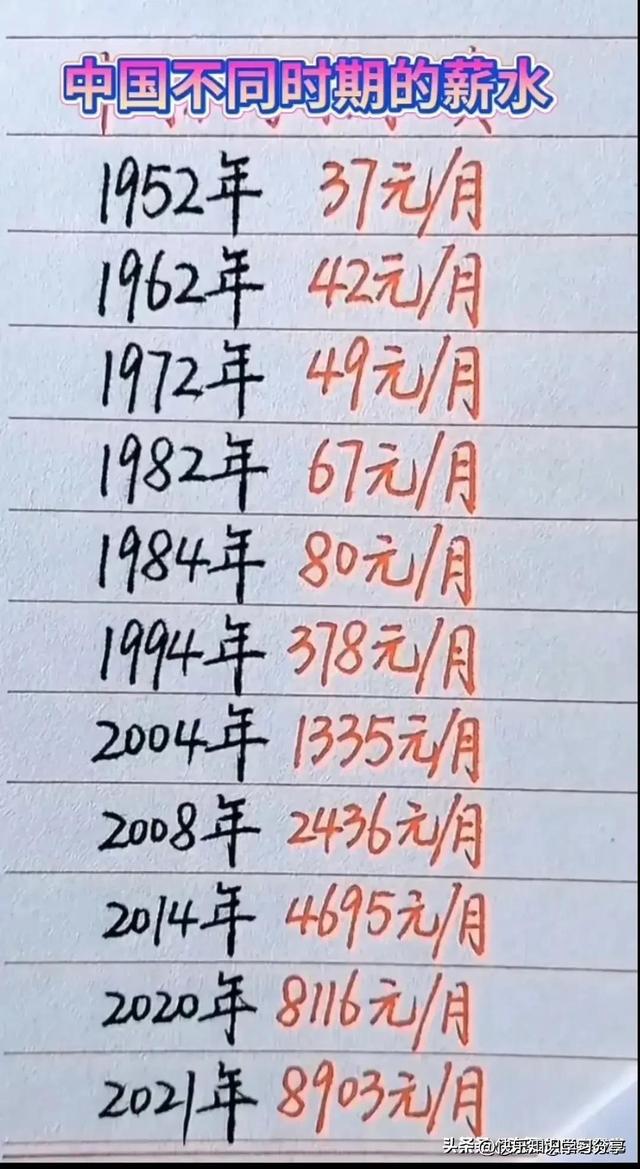 中国不同时期的薪水
1952年 37元/月
1962年 42元/月
1972年 49元/月
1982年 67元/月
1984年 80元/月
1994年 378元/月
2004年 1335元/月
2008年 2436元/月
2014年 4695元/月
2020年 8116元/月
2021年 8903元/月
头条 @快乐知识学习分享